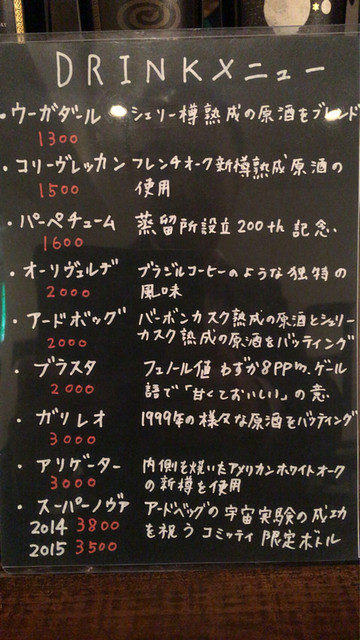 DRINKメニュー
・ウーガダール シェリー樽熟成の原酒をブレンド
1300
・コリーヴレッカン フレンチオーク新樽熟成原酒の
1500 使用
・パーペチューム 蒸留所設立200th記念
1600
・オーリヴェルデ ブラジルコーヒーのような独特の
2000 風味
・アードボッグ バーボンカスク熟成の原酒とシェリー
2000 カスク熟成の原酒をバッティング
・ブラスタ フェノール値 わずか8PPm.ゲール
2000 語で「甘くておいしい」の意
・ガリレオ 1999年の様々な原酒をバッティング
3000
・アリゲーター 内側を焼いたアメリカンホワイトオーク
3000 の新樽を使用
・スーパーノヴァ アードベッグの宇宙実験の成功
2014 3800 を祝う コミッティ 限定ボトル
2015 3500